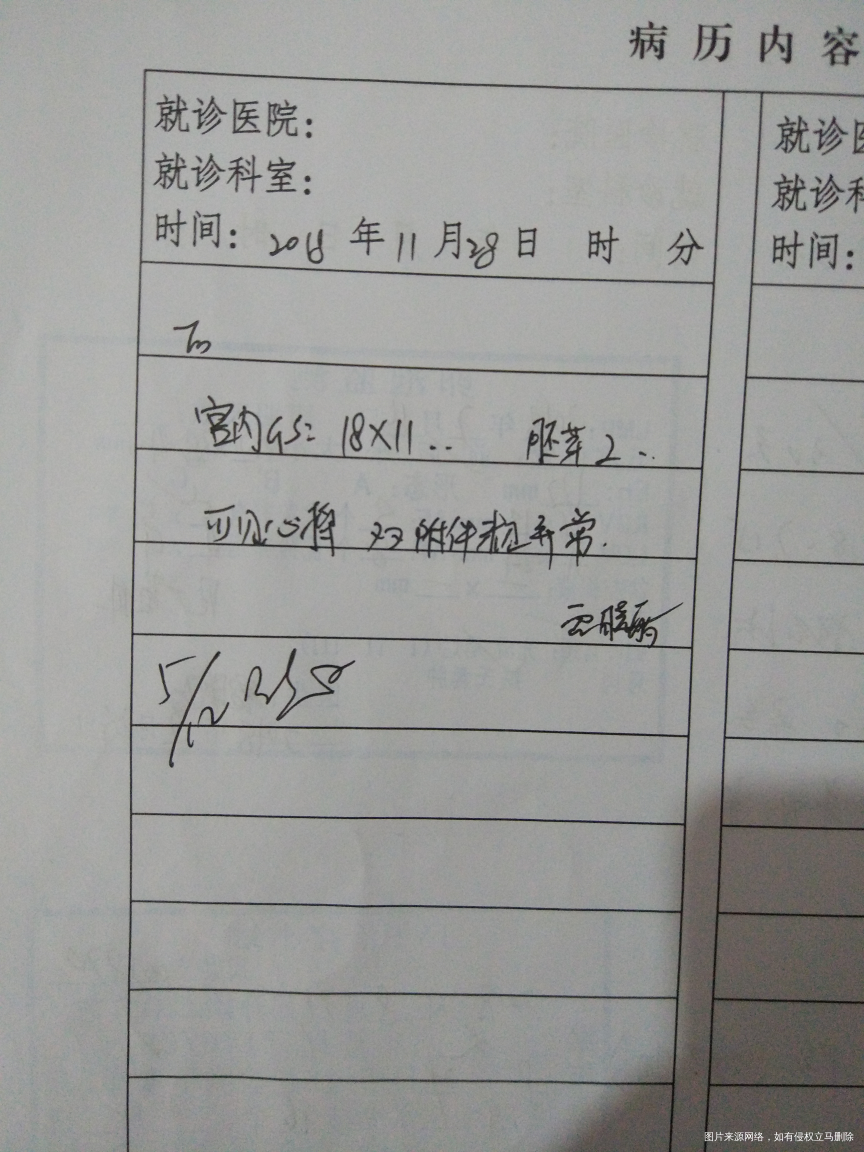 病历内容
就诊医院:
就诊科室:
时间: 2018 年 11 月 28 日 时 分
宫内GS: 18X11.. 胚芽2..
可见心搏 双附件未见异常.
5/12 B超
就诊医
就诊科
时间:
图片来源网络，如有侵权立马删除